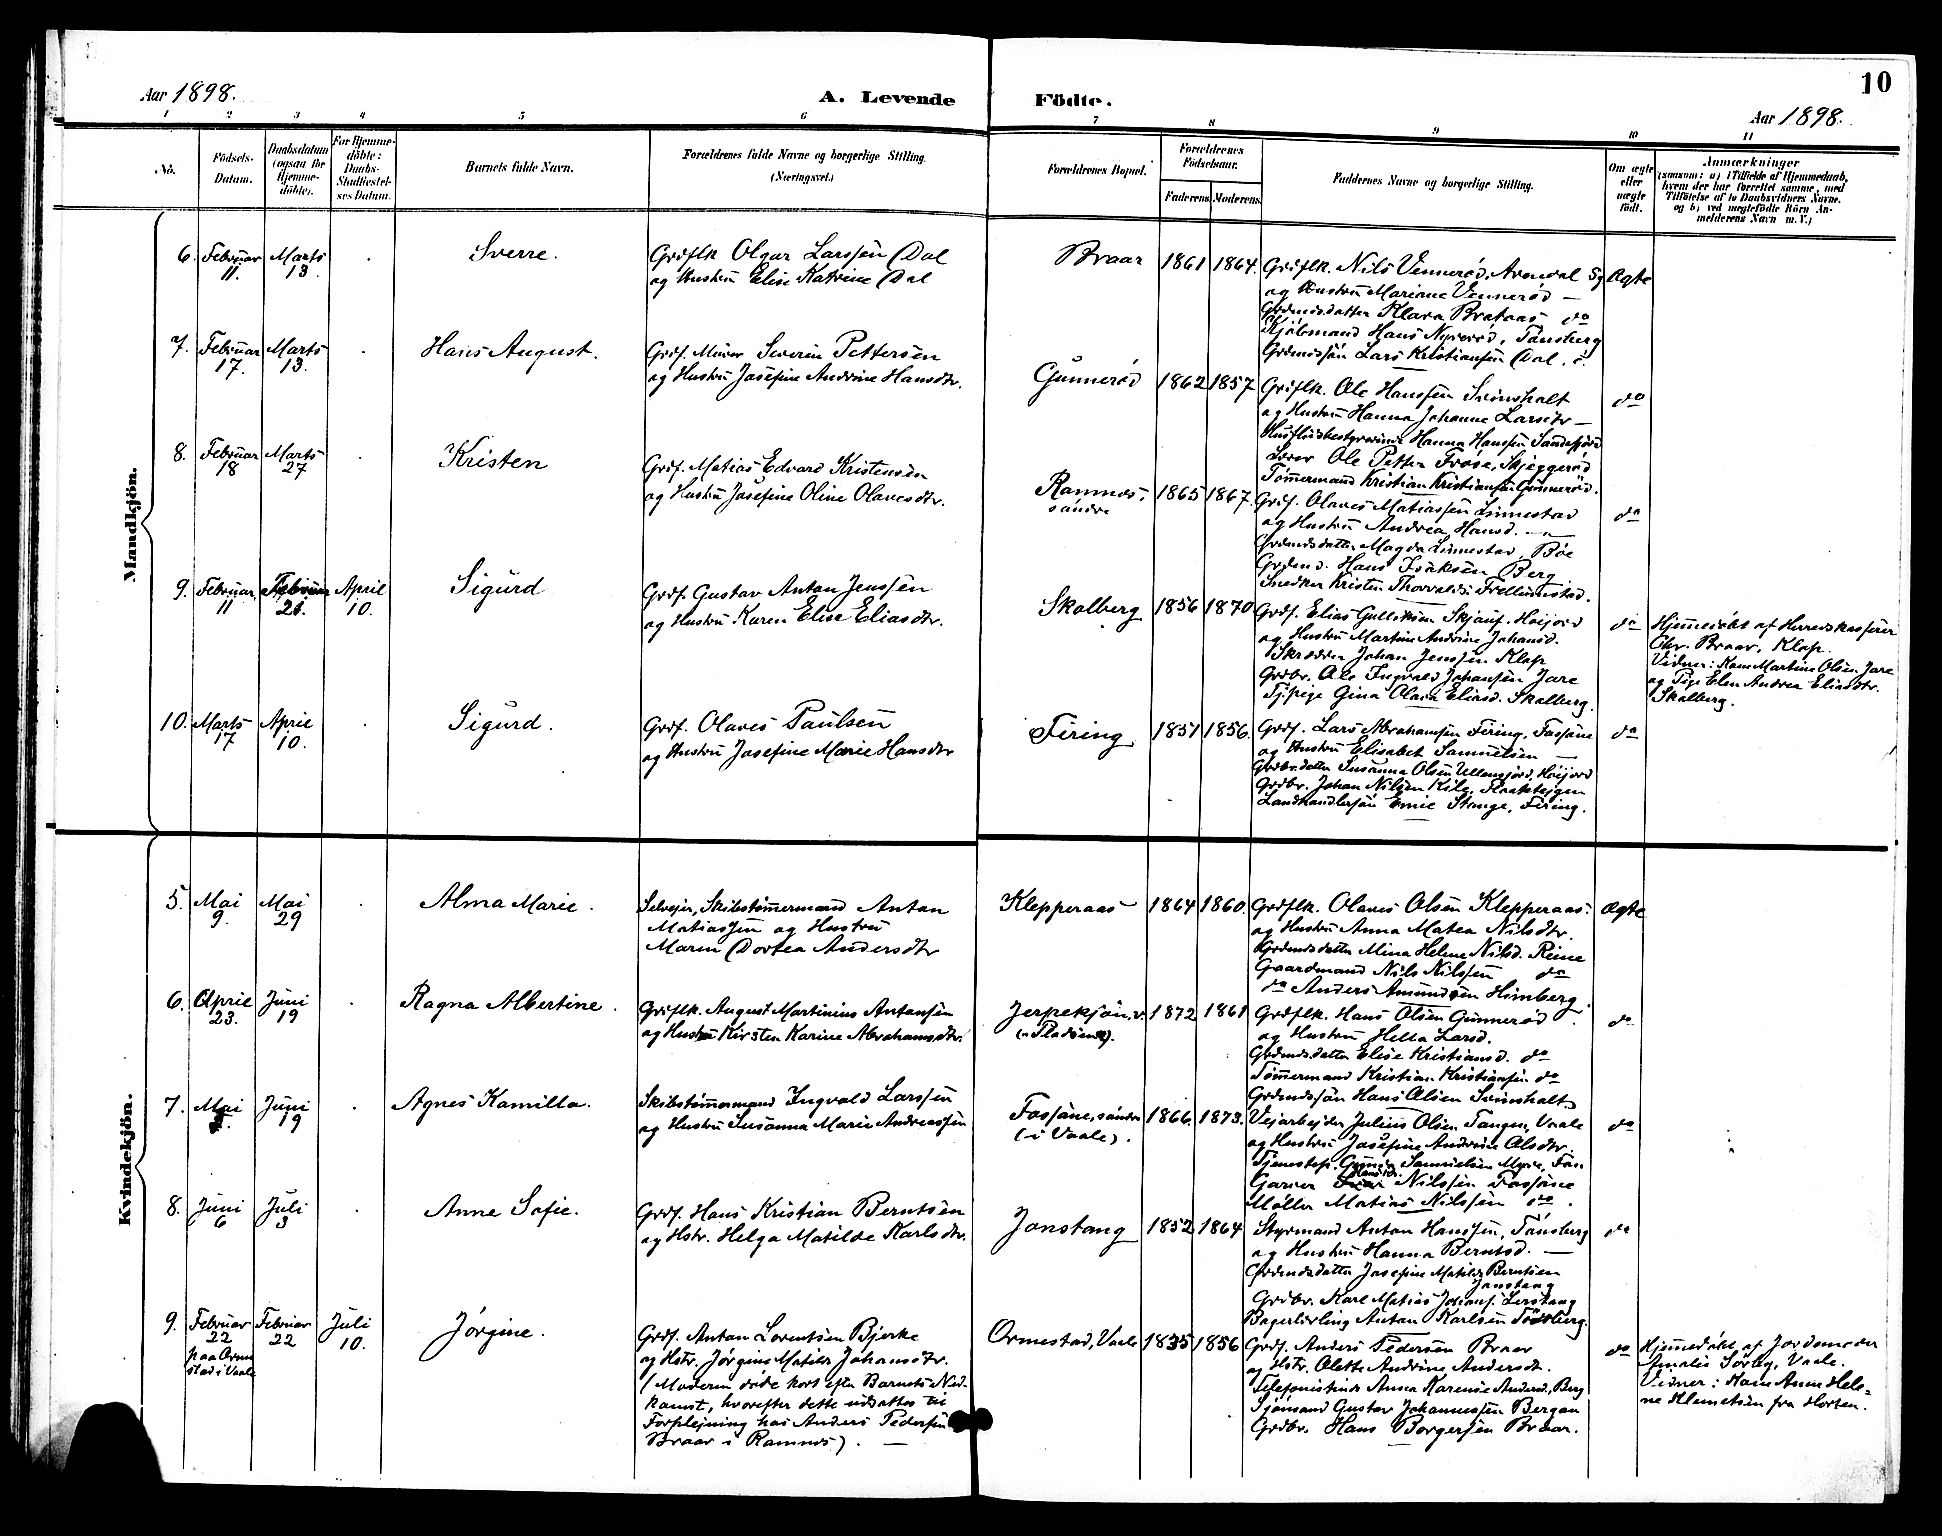 10
Aar 1898.
A. Levende Födte.
Aar 1898.
1 2 3 4 5 6 7 8 9 10 11
No.
Födsels-
Datum.
Daabsdatum
(ogsaa for
Hjemme-
döbte).
For Hjemme-
döbte:
Daabs-
Stadfæstel-
ses Datum.
Barnets fulde Navn.
Forældrenes fulde Navne og borgerlige Stilling.
(Næringsvei.)
Forældrenes Bopæl.
Forældrenes
Födselsaar.
Faderens. Moderens.
Faddernes Navne og borgerlige Stilling.
Om ægte
eller
uægte
födt.
Anmærkninger
(saasom: a) i Tilfælde af Hjemmedaab,
hvem der har forrettet samme, med
Tilföielse af to Daabsvidners Navne,
og b) ved uægtefödte Börn An-
melderens Navn m. V.)
Mandkjön.
6. Februar
11.
Marts
13.
Sverre.
Grdflk Olgar Larssen Dal
og Hustru Elise Katrine Dal
Braar 1861 1864.
Grdflk. Nils Vennerød, Arendal Sg
og Hustru Mariane Vennerød —
Grdmdsdatter Klara Brataas do
Kjöbmand Hans Nyrerød, Tønsberg
Grdmdssön Lars Kristiansen Dal.
Ægte
7. Februar
17.
Marts
13.
Hans August.
Grdf. Murer Severin Pettersen
og Hustru Josefine Andrine Hansdtr.
Gunnerød 1862 1857
Grdflk. Ole Hanssen Svinsholt
og Hustru Hanna Johanne Larsdtr —
Husflidsbestyrerinde Hanna Hanssen Sandefjord
Lærer Ole Petter Frøse, Skjeggerød
Tømmermand Kristian Kristiansen Gunnerød.
do
8. Februar
18
Marts
27
Kristen
Grdf. Matias Edvard Kristensen
og Hustru Josefine Oline Olavesdtr.
Ramnes,
söndre
1865 1867.
Grdf. Olaves Matiassen Linnestad
og Hustru Andrea Hansd. —
Grdmdsdatter Magda Linnestad, Böe
Grdmd. Hans Isaksen Berg
Snedker Kristen Thorvalds. Frellumstad.
do
9. Februar
11
Februar
21.
April
10.
Sigurd
Grdf. Gustav Anton Jenssen
og Hustru Karen Elise Eliasdtr.
Skalberg 1856 1870
Grdf. Elias Gulliksen Skjauf. Höijord
og Hustru Martine Andrine Johansd.
Skrædder Johan Jenssen Klop
Grdbr. Ole Ingvald Johansen Jare
Tj.pige Gina Olava Eliasd. Skalberg.
do
Hjemmedöbt af Herredskasserer
Chr. Braar, Klop.
Vidner: Kone Martine Olsen Jare
og Pige Elen Andrea Eliasdtr.
Skalberg.
10. Marts
17
April
10.
Sigurd.
Grdf. Olaves Paulsen
og Hustru Josefine Marie Hansdtr
Firing 1851 1856.
Grdf. Lars Abrahamsen Firing, Fossane
og Hustru Elisabet Samuelsen —
Grdbr.datter Susanna Olsen Ullensjord, Höijord
Grdbr. Johan Nilsen Kile, Flaatteigen
Landhandlersön Emil Stange, Firing.
do
Kvindekjön.
5. Mai
9.
Mai
29
Alma Marie.
Selveier, Skibstömmermand Anton
Matiassen og Hustru
Maren Dortea Andersdtr
Klepperaas 1864 1860.
Grdflk. Olaves Olsen Klepperaas.
og Hustru Anna Matea Nilsdtr.
Grdmdsdatter Mina Helene Nilsd. Reine
Gaardmand Nils Nilssen do
do Anders Amundsen Himberg.
Ægte
6. April
23.
Juni
19
Ragna Albertine.
Grdflk. August Martinius Antonsen
og Hustru Kirsten Karine Abrahamsdtr.
Jerpekjön, v.
1872 1861
Grdflk. Hans Olsen Gunnerød
og Hustru Hella Larsd.
Grdmdsdatter Elise Kristiansd. do
Tømmermand Kristian Kristiansen do
Grdmdssön Hans Olsen Svinsholt.
do
7. Mai
Juni
19
Agnes Kamilla.
Skibstömmermand Ingvald Larssen
og Hustru Susanna Marie Andreassen
Fossane, söndre
(i Vaale).
1866. 1873.
Veiarbeider Julius Olsen Tangen, Vaale
og Hustru Josefine Andrine Olsdtr
Tjenestep. Samuelsen Myre, Fon
Garver Nilssen Fossane
Møller Matias Nilssen do.
do
8. Juni
6
Juli
3
Anne Sofie.
Grdf. Hans Kristian Berntsen
og Hstr. Helga Matilde Karlsdtr.
Jonstang 1852 1864
Styrmand Anton Hanssen, Tönsberg
og Hustru Hanna Berntsd. —
Grdmdsdatter Josefine Matilde Berntsen
Jonstang
Grdbr. Karl Matias Johans. Lerstang
Bagerlærling Anton Karlsen Tönsberg.
do
9. Februar
22
paa Orme
stad i Vaale
Februar
22
Juli
10.
Jørgine.
Grdf. Anton Lorentsen Bjerke
og Hstr. Jørgine Matilde Johansdtr.
(Moderen døde kort efter Barnets Ned-
komst, hvorefter dette udsattes til
Forplejning hos Anders Pedersen
Braar i Ramnes). —
Ormestad, Vaale 1835 1856
Grdf. Anders Pedersen Braar
og Hstr. Olette Andrine Andersdt.
Telefonistinde Anna Karense Andersd, Berg
Sjömand Gustav Johannessen Bergan
Grdbr. Hans Borgersen Braar.
do
Hjemmedöbt af Jordemoder
Amalie Sörby, Vaale.
Vidner: Kone Anne Hele-
ne Klemetsen fra Horten.